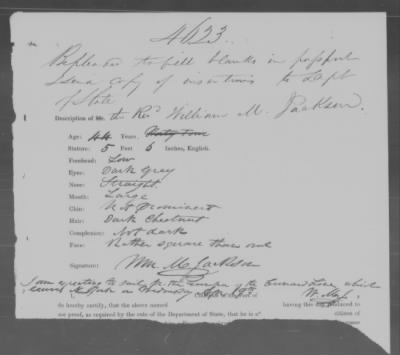 4623.
Be pleased to fill blanks in passport
& send copy of insertions to Dept
of State
Description of Mr. the Revd William M. Jackson.
Age: 44 Years, Forty four
Stature: 5 Feet 6 Inches, English.
Forehead: Low
Eyes: Dark Gray
Nose: Straight
Mouth: Large
Chin: Not Prominent
Hair: Dark Chestnut
Complexion: Not dark
Face: Rather square than oval
Signature: Wm M. Jackson
I am expecting to sail in the steamer of the Cunard Line, which
leaves New York on Wednesday
W. M. J.
do hereby certify, that the above named having this day produced to
me proof, as required by the rule of the Department of State, that he is a citizen of